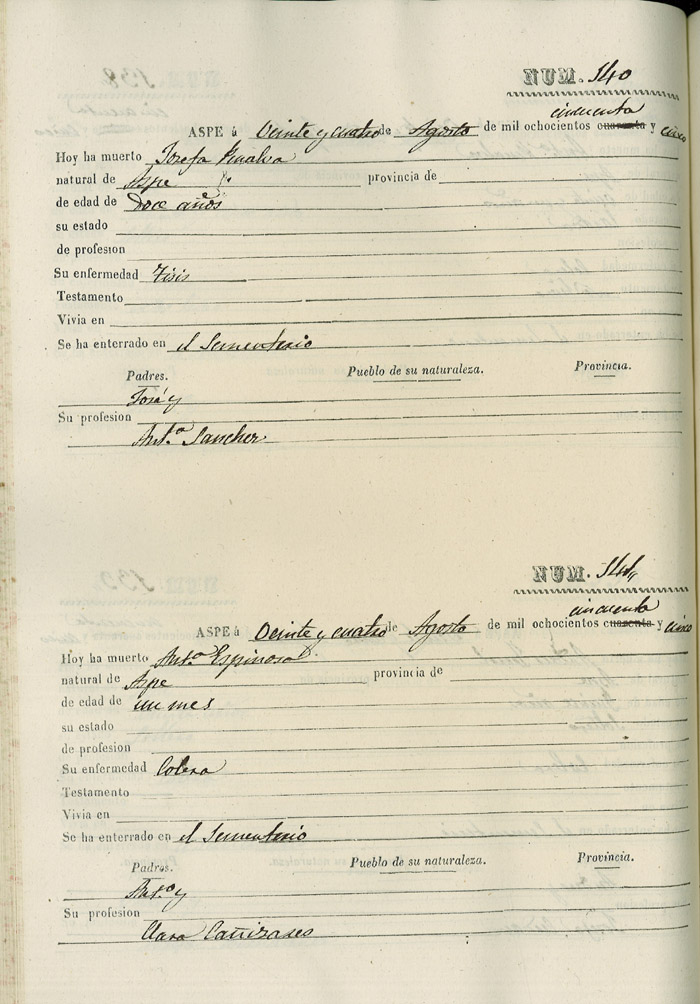 NUM. 140
cincuenta
ASPE á Veinte y cuatro de Agosto de mil ochocientos cuarenta y cinco
Hoy ha muerto Josefa
natural de Aspe provincia de
de edad de Doce años
su estado
de profesion
Su enfermedad Tisis
Testamento
Vivia en
Se ha enterrado en el Sementerio
Padres. Pueblo de su naturaleza. Provincia.
José y
Su profesion
Ant.a Sanchez
NUM. 141
cincuenta
ASPE á Veinte y cuatro de Agosto de mil ochocientos cuarenta y cinco
Hoy ha muerto Ant.a Espinosa
natural de Aspe provincia de
de edad de un mes
su estado
de profesion
Su enfermedad Colera
Testamento
Vivia en
Se ha enterrado en el Sementerio
Padres. Pueblo de su naturaleza. Provincia.
Ant.o y
Su profesion
Clara Cañizares